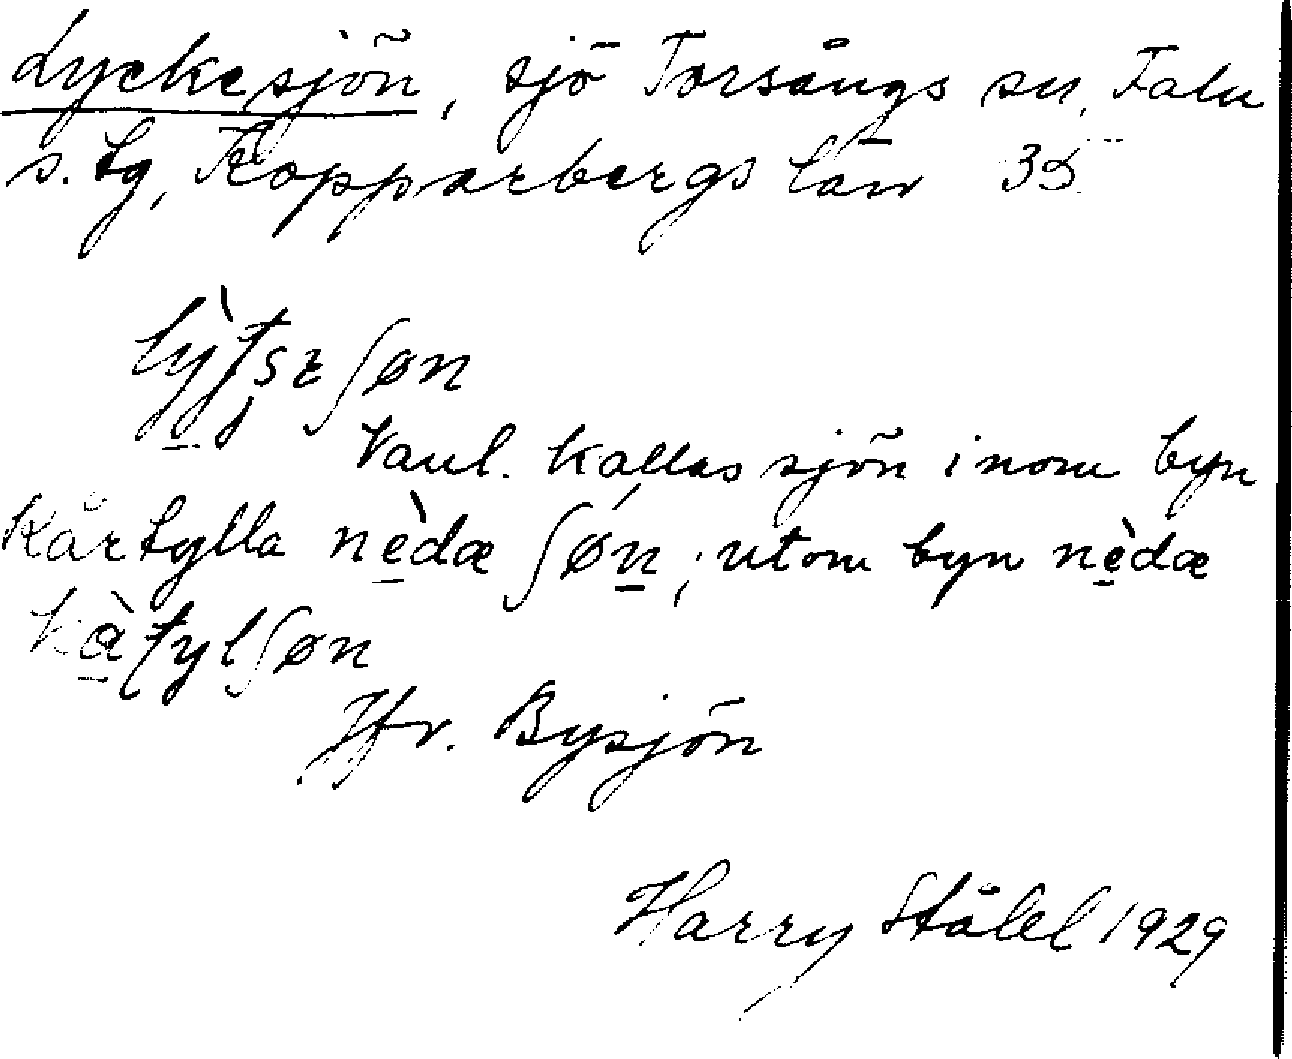 Lyckesjön, sjö Torsångs sn, Falu
s. tg, Kopparbergs län 35
Vanl. kallas sjön inom byn
Kårtylla nèdæ ʃøn; utom byn nèdæ
kàtylʃøn
Jfr. Bysjön
Harry Ståhl 1929